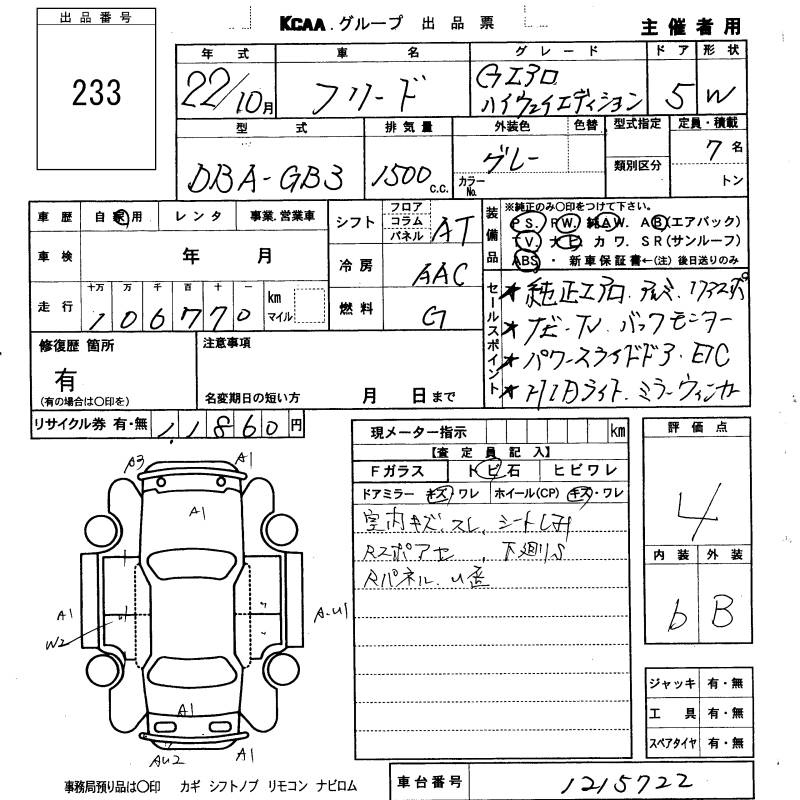 出品番号
233
KCAA.グループ 出品票
主催者用
年式 車名 グレード ドア 形状
22/10月 フリード Gエアロ ハイウェイエディション 5 W
型式 排気量 外装色 色替 型式指定 定員・積載
DBA-GB3 1500c.c. グレー カラーNo. 類別区分 7名
トン
車歴 自家用 レンタ 事業.営業車
シフト フロア コラム パネル AT
装備品
※純正のみ〇印をつけて下さい。
PS. PW. 純AW. AB(エアバック)
TV. ナビ カワ. SR(サンルーフ)
ABS ・ 新車保証書←(注)後日送りのみ
車検 年 月
冷房 AAC
走行 十万 万 千 百 十 一 km マイル
106770
燃料 G
セールスポイント
★純正エアロ.アルミ.リアスポ
★ナビ・TV.バックモニター
★パワースライドドア・ETC
★HIDライト.ミラーウィンカー
修復歴 箇所
有
(有の場合は〇印を)
注意事項
名変期日の短い方 月 日まで
リサイクル券 有・無 11860円
現メーター指示 km
【査定員記入】
Fガラス トビ石 ヒビワレ
ドアミラー キズ・ワレ ホイール(CP) キズ・ワレ
室内キズ、スレ、シートしみ
Rスポアセ、下廻りS
Rパネル.U歪
評価点
4
内装 外装
b B
A3 A1
A1
A1 A-U1
W2
A1
AU2 A1
ジャッキ 有・無
工具 有・無
スペアタイヤ 有・無
事務局預り品は〇印 カギ シフトノブ リモコン ナビロム
車台番号 1215722